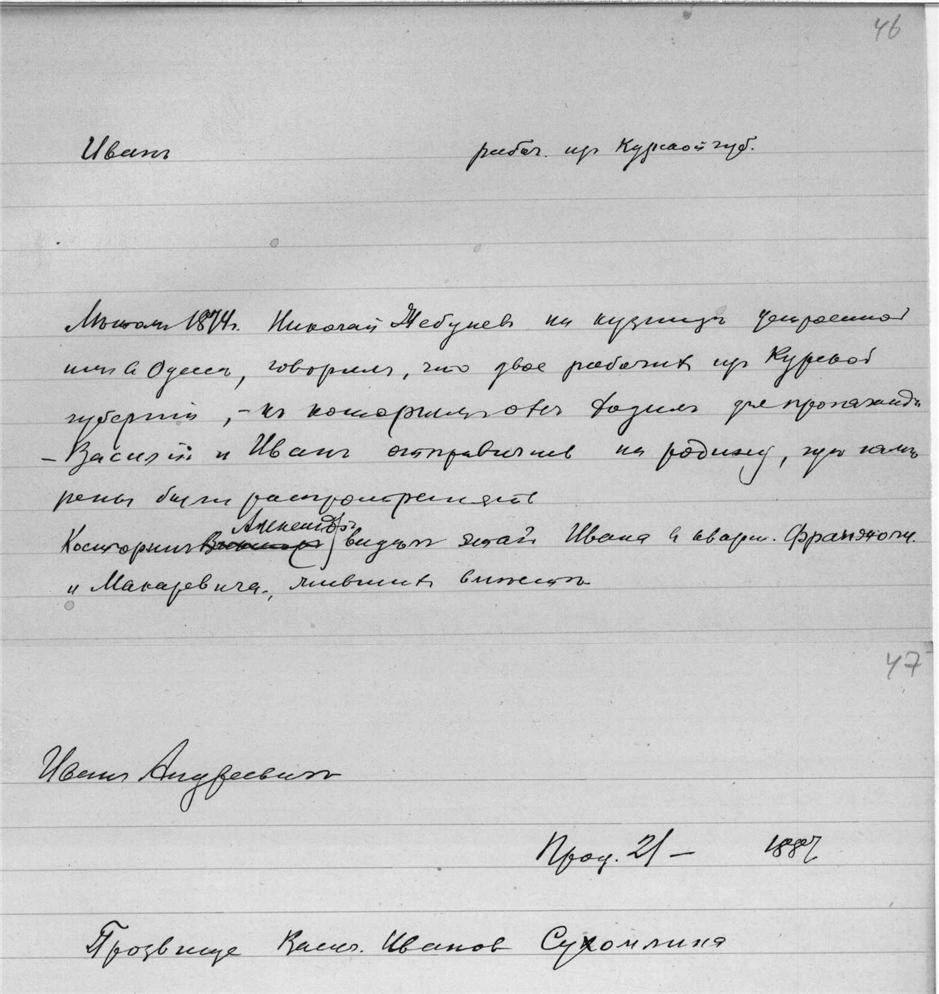 46
Иванъ рабоч. изъ Курской губ.
Лѣтомъ 1874 г. Николай Жебуневъ на кузницѣ устроенной
имъ въ Одессѣ, говорилъ, что двое рабочихъ изъ Курской
губерніи, – къ которымъ онъ ходилъ для пропаганды
– Василій и Иванъ отправились на родину, гдѣ намѣ
рены были распространять
Александръ
Костюринъ видѣлъ этой Ивана въ кварт. Франжоли
и Макаревича, жившихъ вмѣстѣ
47
Иванъ Андреевичъ
Проц. 21 – 1887
Прозвище Васил. Иванов Сухомлина